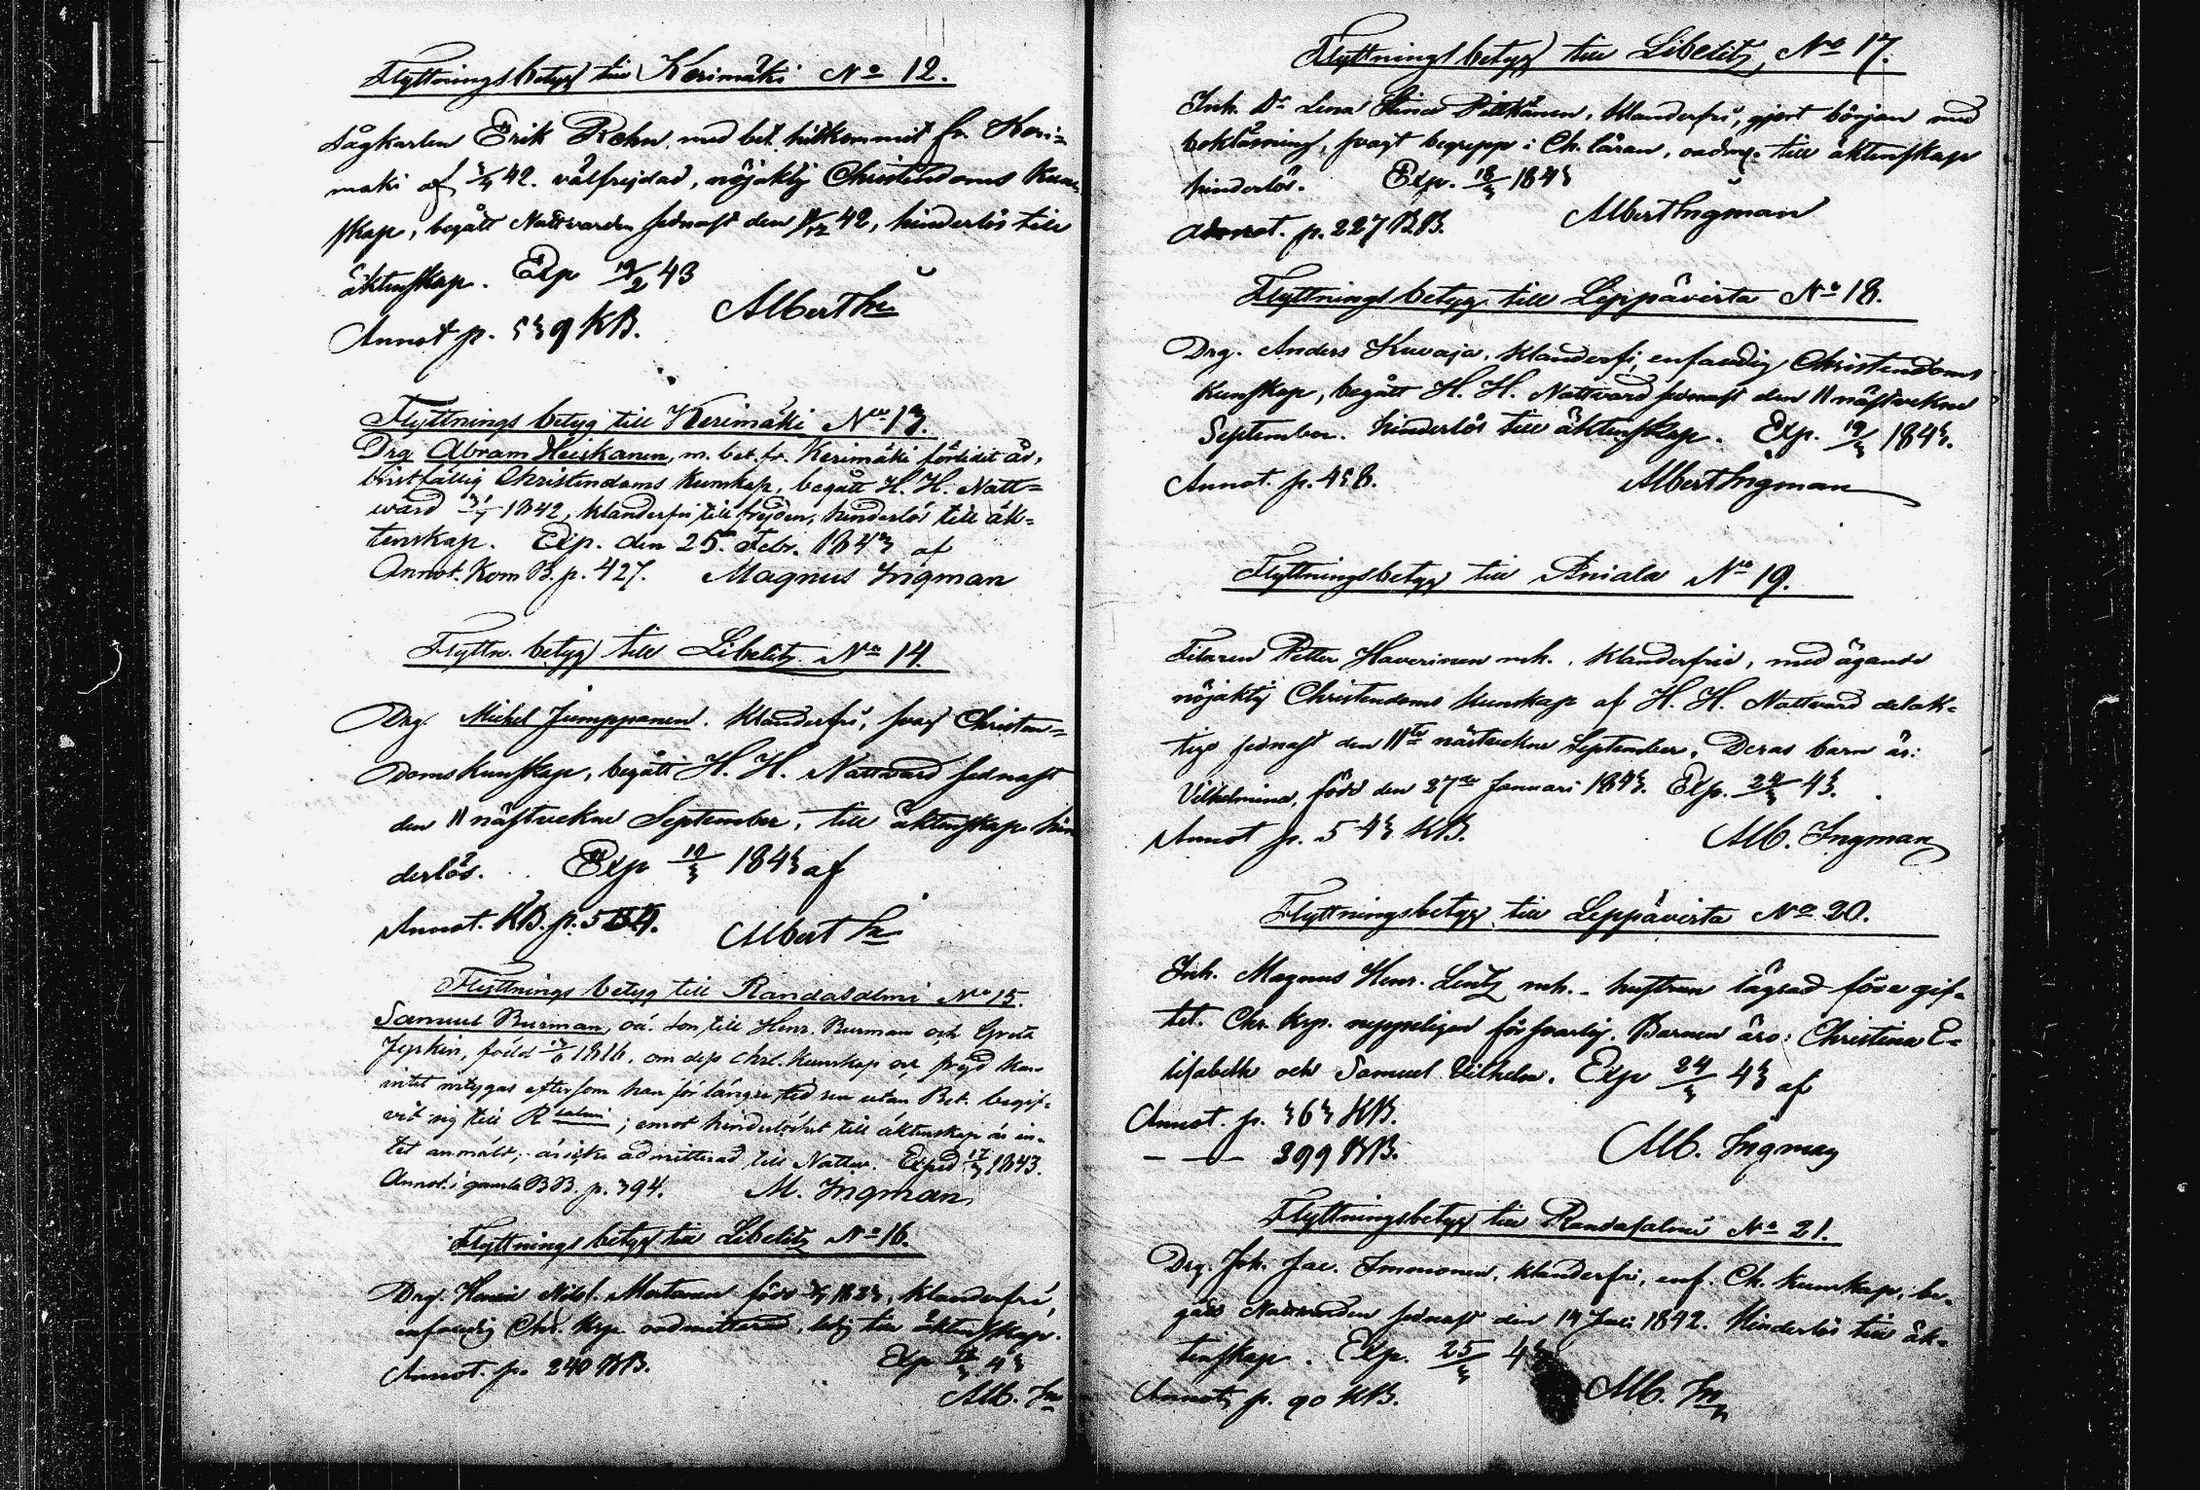 Flyttningsbetyg till Kerimäki No 12.
Sågkarlen Erik Rehn, med bet. hitkommit fr. Keri=
mäki af 42. välfrejdad, nöjaktig Christendoms Kun
skap, begått Nattvarden sednast den 42, hinderlös till
äktenskap. Exp 19/2 43
Annot p. 539 KB. Albert In
Flyttnings betyg till Kerimäki No 13.
Drg. Abram Heiskanen, m. bet. fr. Kerimäki förlidit år,
bristfällig Christendoms Kunskap, begått H. H. Natt=
ward 1842, klanderfri till frejden, hinderlös till äk=
tenskap. Exp. den 25. Febr. 1843 af
Annot. Kom B. p. 427. Magnus Ingman
Flyttn. betyg till Libelitz No 14.
Drg. Michel Jumppanen. Klanderfri, svag Christen=
doms kunskap, begått H. H. Nattvard sednast
den 11 nästvekne September, till äktenskap hin
derlös. Exp 10/3 1843 af
Annot. KB. p. Albert In
Flyttnings betyg till Randasalmi No 15.
Samuel Burman, oä. Son till Henr. Burman och Greta
född 1816, om dess chrl. Kunskap och frejd kan
intet intygas eftersom han för längre tid sen utan Bet. begif=
vit sig till R salmi; emot hinderlöshet till äktenskap är in=
tet anmäldt; är icke admitterad till Nattv. Exped 1843.
Annot. i gamla BB. p. 394. M. Ingman
Flyttnings betyg till Libelitz No 16.
Drg. Nils Martanen född 1823, klanderfri,
enfaldig Chr. ksp. oadmitterad, ledig till äktenskap.
Annot. p. 240 BB. Exp 43
Alb. In
Flyttningsbetyg till Libelitz, No 17.
Inh. Dr Lena Stina Pitkänen, klanderfri, gjort början med
bokläsning, svagt begrepp i Ch. läran, oadm. till äktenskap
hinderlös. Exp. 18/3 1843
Annot. p. 227 BB. Albert Ingman
Flyttnings betyg till Leppävirta No 18.
Drg. Anders Kuvaja, klanderfri, enfaldig Christendoms
Kunskap, begått H. H. Nattvard sednast den 11 nästvekne
September. hinderlös till äktenskap. Exp. 19/3 1843.
Annot. p. 458. Albert Ingman
Flyttningsbetyg till Aniala No 19.
Petter Haverinen mh., klanderfrie, med ägande
nöjaktig Christendoms kunskap af H. H. Nattvard delak=
tige sednast den 11te nästvekne September. Deras barn är:
Vilhelmina, född den 27de Januari 1843. Exp. 24/3 43.
Annot p. 543 KB. Alb. Ingman
Flyttningsbetyg till Leppävirta No 20.
Inh. Magnus Henr. Lentz mh. - hustrun lägrad före gif=
tet. Chr. ksp. nyppeligen försvarlig. Barnen äro: Christina E=
lisabeth och Samuel Vilhelm. Exp 24/3 43 af
Annot. p. 363 KB.
— — 399 BB. Alb. Ingman
Flyttningsbetyg till Randasalmi No 21.
Drg. Joh. Jac. Immonen, klanderfri, enf. Ch. kunskap, be=
gått Nattvarden sednast den 17 Juli 1842. Hinderlös till äk=
tenskap. Exp. 25/3 43
Annot. p. 90 KB. Alb. In